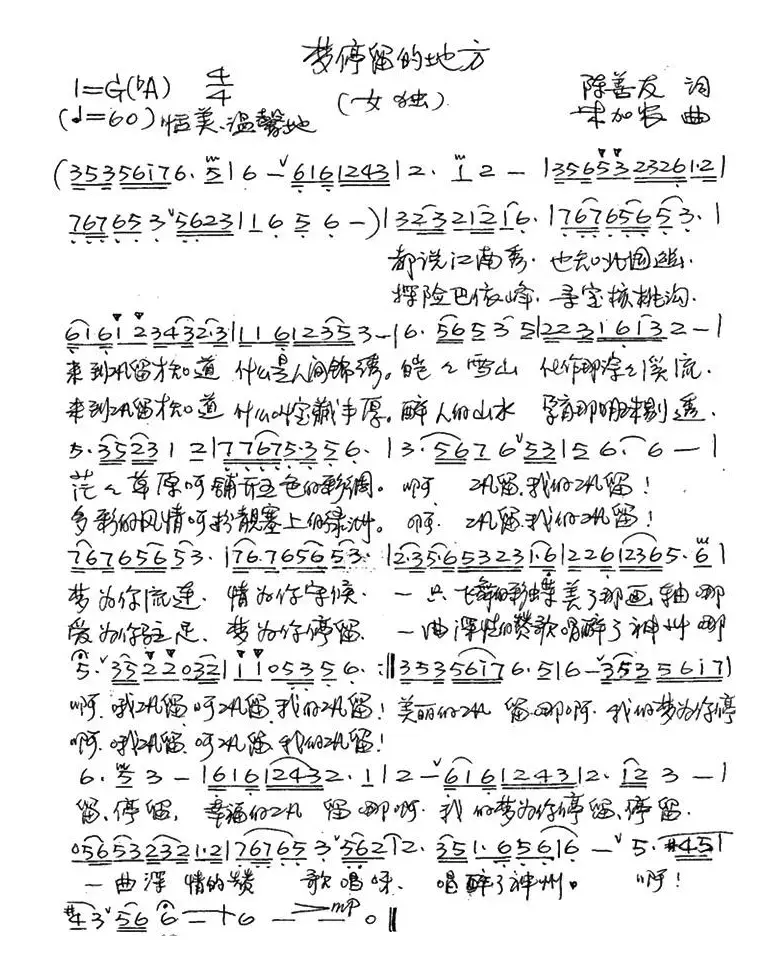 梦停留的地方
1=G(♭A) 4/4
(女独)
陈善友 词
(♩=60) 恬美、温馨地
加农 曲
(35356i76. 5|6 - 6161243|2. i 2 - |35653232612|
767653 5623|1 6 5 6 -)|32321216. |76765653. |
都说江南秀. 也知北国
探险巴依峰. 寻宝核桃沟.
616i234323|11612353-|6. 5653 5|22316132-|
来到巩留才知道 什么是人间锦绣。皑皑雪山 化作那淙淙溪流.
来到巩留才知道 什么叫宝藏丰厚。醉人的山水 孕育那明珠剔透.
5. 35231 2|77675.356. |3. 5676 53|56. 6 - |
茫茫草原呵铺开五色的彩绸。啊 巩留.我的巩留!
多彩的风情呵扮靓塞上的绿洲。啊. 巩留.我的巩留!
76765653. |76.765653. |2.35.653231.6|22612365. 6|
梦为你流连. 情为你守候. 一只飞舞的彩蝶美了那画轴那
爱为你驻足. 梦为你停留. 一曲深情的赞歌唱醉了神州那
5. 3522032|1105356. :||35356i76.51|6 - 35356i7|
啊.哦巩留呵巩留.我的巩留! 美丽的巩留那啊. 我的梦为你停
啊.哦巩留.呵巩留.我的巩留!
6. 5 3 - |61612432.1|2 - 6161243|2. 12 3 - |
留、停留. 幸福的巩留那啊. 我的梦为你停留、停留.
056532321.2|767653 562|2. 351.65616 - 5. #45|
一曲深情的赞歌唱呀. 唱醉了神州。 啊!
#43 56 6 - |6 - - mp 0||